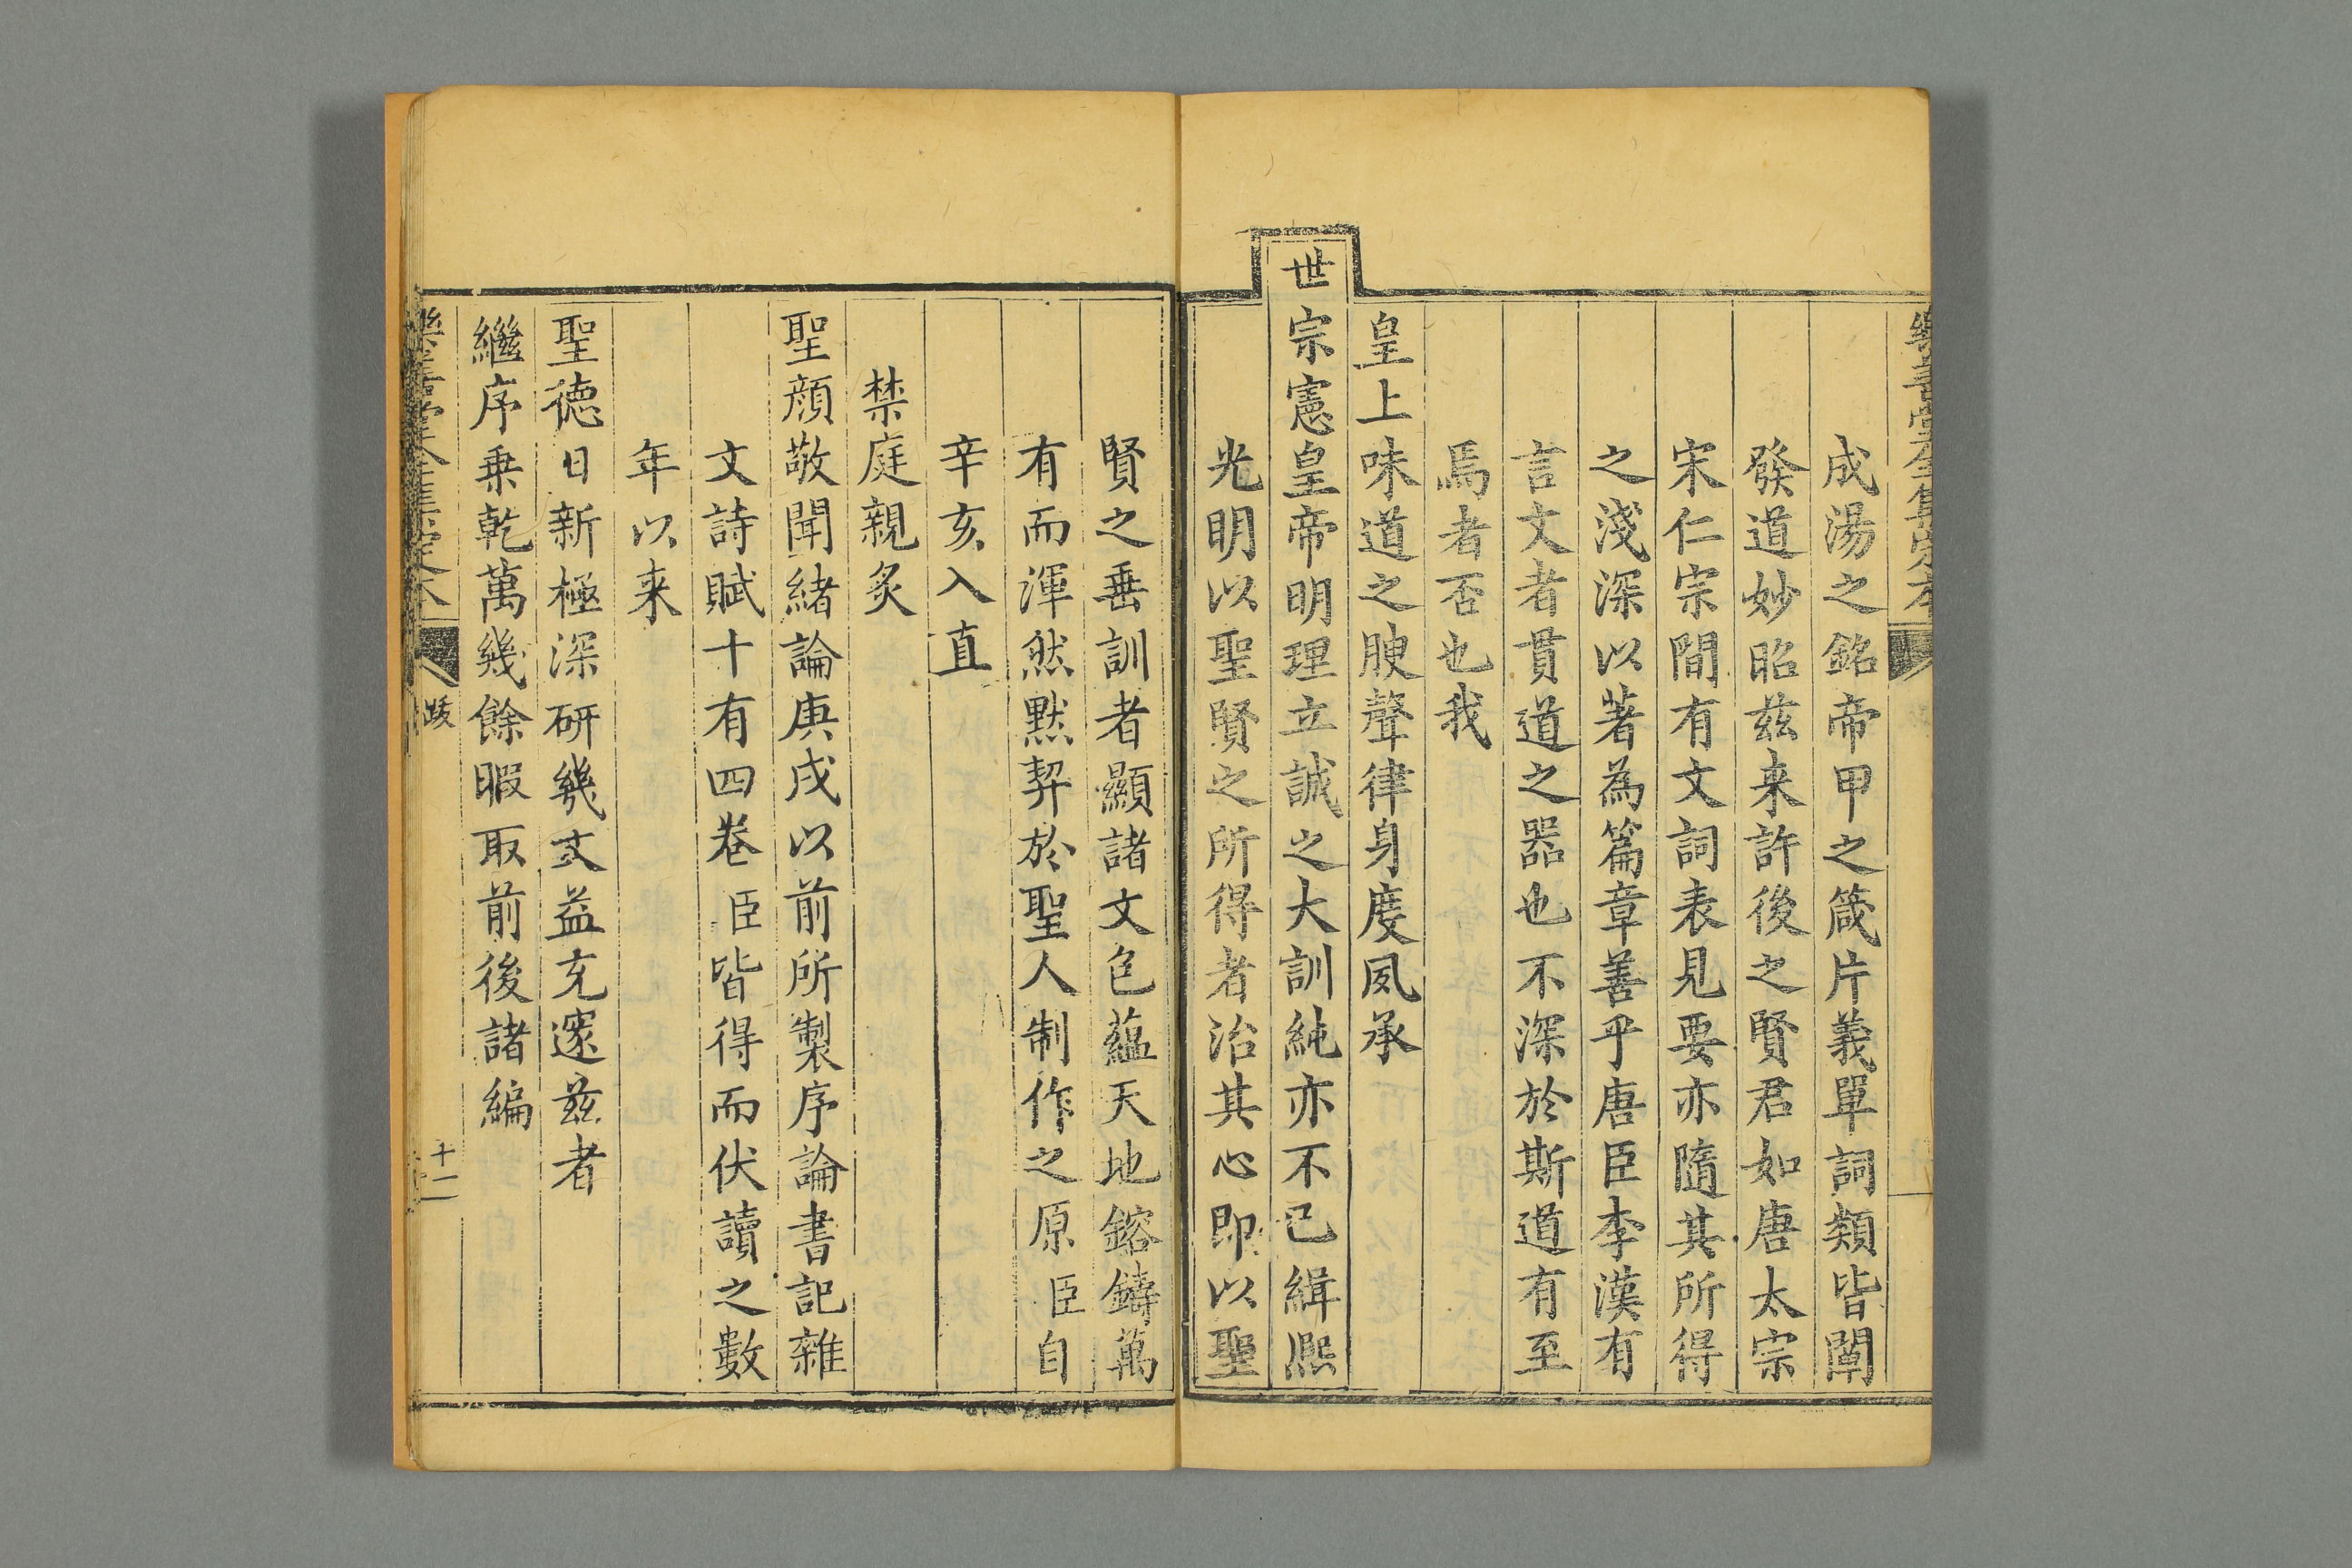 樂善堂全集定本
成湯之銘帝甲之箴片義單詞類皆闡
發道妙昭茲来許後之賢君如唐太宗
宋仁宗間有文詞表見要亦隨其所得
之淺深以著為篇章善乎唐臣李漢有
言文者貫道之器也不深於斯道有至
焉者否也我
皇上味道之腴聲律身度夙承
世宗憲皇帝明理立誠之大訓純亦不已緝熙
光明以聖賢之所得者治其心即以聖
賢之垂訓者顯諸文包蘊天地鎔鑄萬
有而渾然默契於聖人制作之原臣自
辛亥入直
禁庭親炙
聖顔敬聞緒論庚戌以前所製序論書記雜
文詩賦十有四卷臣皆得而伏讀之數
年以来
聖德日新極深研幾文益充邃茲者
繼序乗乾萬幾餘暇取前後諸編
樂善堂全集定本 跋 十二